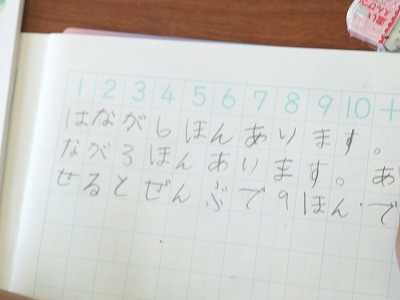 1 2 3 4 5 6 7 8 9 10 +
はなが6ほんあります。
ながろほんあります。あ
せるとぜんぶで9ほん.で